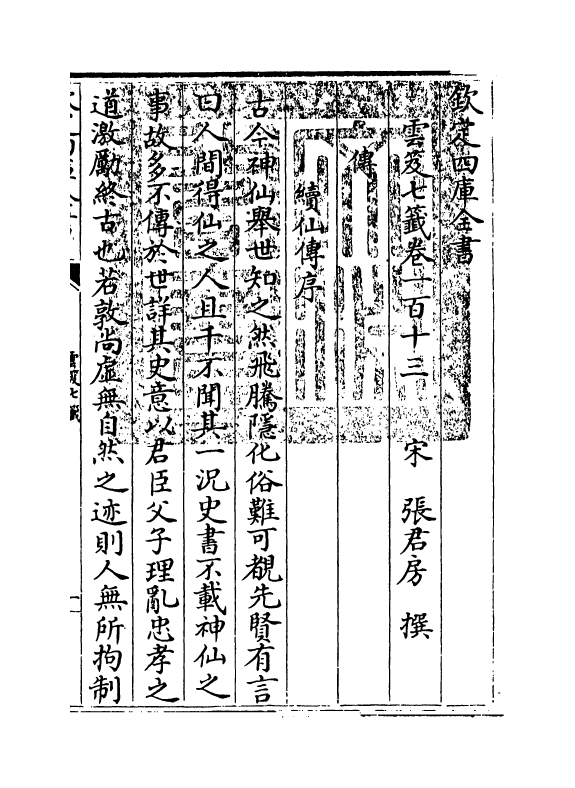 欽定四庫全書
雲笈七籤卷一百十三　宋　張君房　撰
傳
續仙傳序
古今神仙舉世知之然飛騰隱化俗難可覩先賢有言
曰人間得仙之人且千不聞其一況史書不載神仙之
事故多不傳於世詳其史意以君臣父子理亂忠孝之
道激勵終古也若敦尚虛無自然之迹則人無所拘制
雲笈七籤